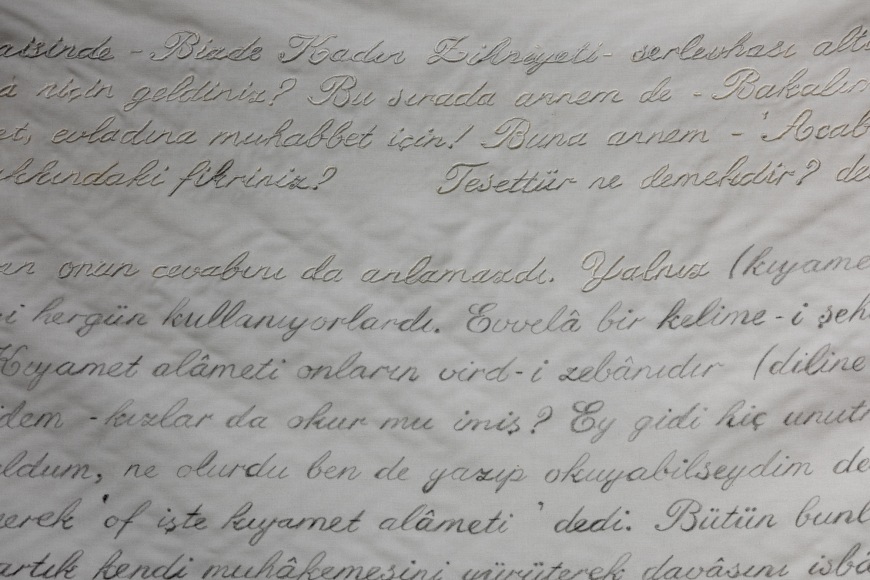 aisinde - Bizde Kadın Zihniyeti - serlevhası altı
a niçin geldiniz? Bu sırada annem de - Bakalır
et, evladına muhabbet için! Buna annem - 'Acab
kkındaki fikriniz? Tesettür ne demekdir? de
an onun cevabını da anlamazdı. Yalnız (kıyame
-i hergün kullanıyorlardı. Evvelâ bir kelime-i şeh
Kıyamet alâmeti onların vird-i zebânıdır (diline
idem - kızlar da okur mu imiş? Ey gidi hiç unutm
oldum, ne olurdu ben de yazıp okuyabilseydim de
nerek 'of işte kıyamet alâmeti' dedi. Bütün bunl
artık kendi muhâkemesini yürüterek davâsını isbâ